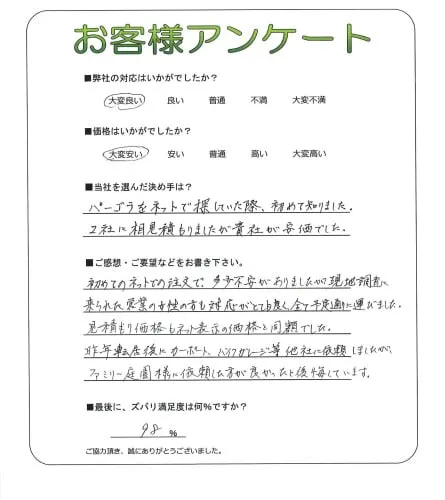 お客様アンケート
■弊社の対応はいかがでしたか?
大変良い 良い 普通 不満 大変不満
■価格はいかがでしたか?
大変安い 安い 普通 高い 大変高い
■当社を選んだ決め手は?
パーゴラをネットで探していた際、初めて知りました。
2社に相見積もりましたが貴社が安価でした。
■ご感想・ご要望などをお書き下さい。
初めてのネットでの注文で、多少不安がありましたが現地調査に
来られた営業の女性の方も対応がとても良く、全て予定通りに運びました。
見積もり価格もネット表示の価格と同額でした。
昨年転居後にカーポート、バイクガレージ等他社に依頼しましたが、
ファミリー庭園様に依頼した方が良かったと後悔しています。
■最後に、ズバリ満足度は何%ですか?
98 %
ご協力頂き、誠にありがとうございました。